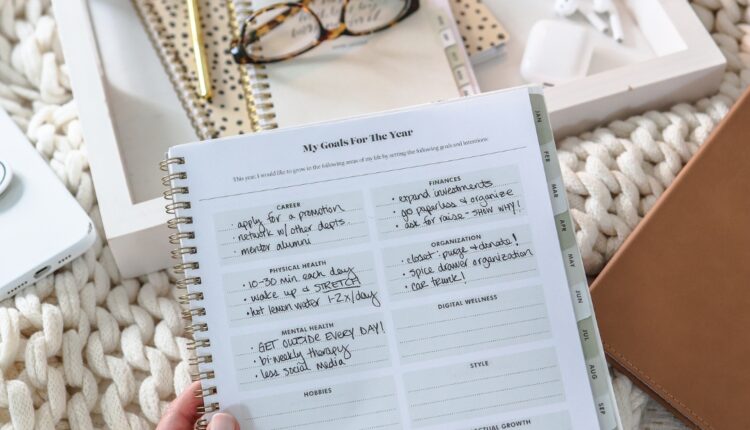 My Goals For The Year
This year, I would like to grow in the following areas of my life by setting the following goals and intentions:
CAREER
• apply for a promotion
• network w/ other depts.
• mentor alumni
FINANCES
• expand investments
• go paperless & organize
• ask for raise - SHOW WHY!
PHYSICAL HEALTH
• 10-30 min each day
• wake up & STRETCH
• hot lemon water 1-2x/day
ORGANIZATION
• closet: purge & donate!
• spice drawer organization
• car trunk!
MENTAL HEALTH
• GET OUTSIDE EVERY DAY!
• bi-weekly therapy
• less social media
DIGITAL WELLNESS
HOBBIES
STYLE
GROWTH
JAN
FEB
MAR
APR
MAY
JUN
JUL
AUG
SEP